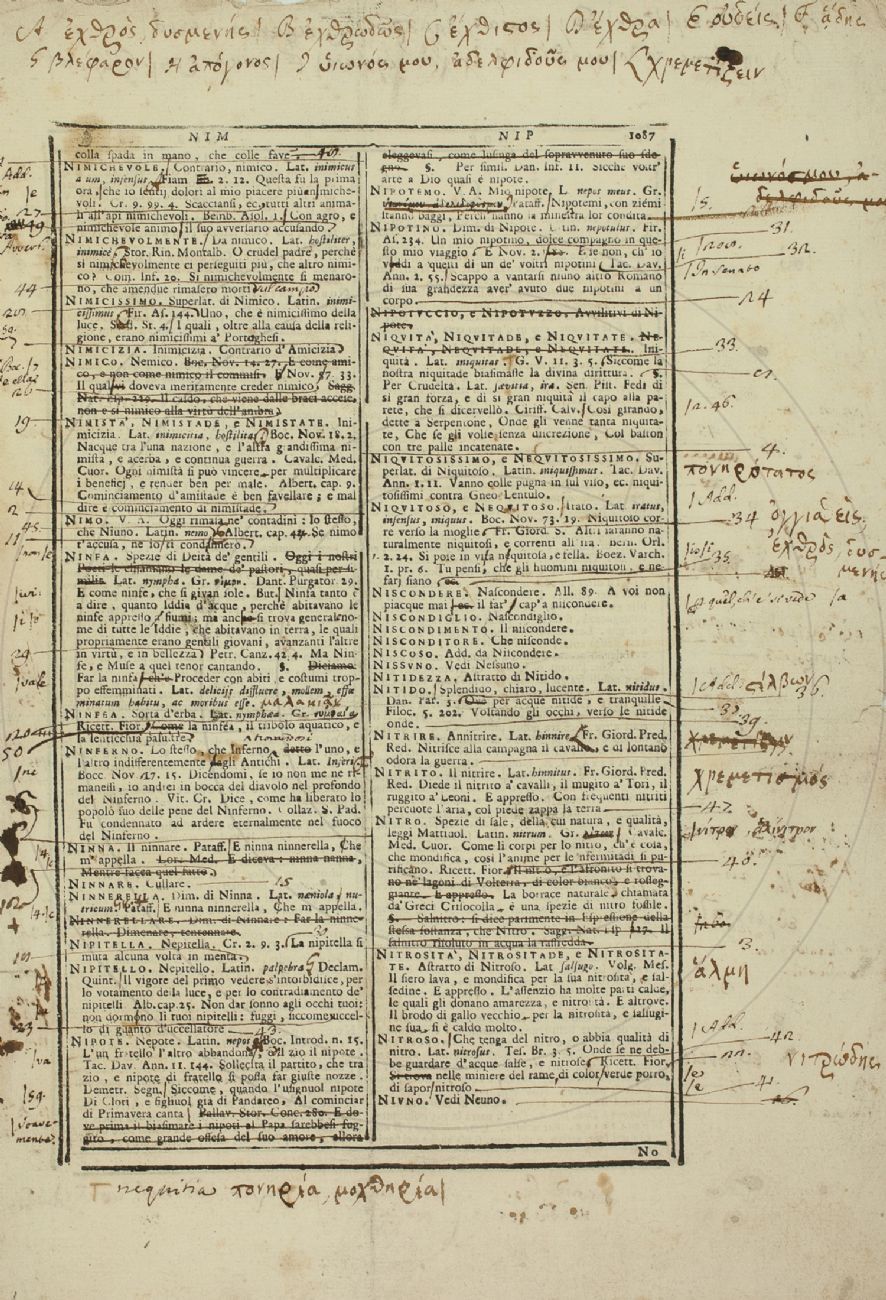 A ἐχθρὸς, δυσμενής| B ἐχθρωδῶς| C ἔχθιστος| D ἔχθρα| E οὐδείς| F ᾅδης
G βλέφαρον| H ἀπόγονος| I υἱωνός μου, ἀδελφιδοῦς μου| χρεμετίζειν
NIM NIP 1087
colla spada in mano, che colle fave.
NIMICHEVOLE. Contrario, nimico. Lat. inimicus
Fiam. 2. 12. Questa fu la prima
ora, che io sentii dolori al mio piacere più nimiche-
voli. Cr. 9. 99. 4. Scacciansi, ec. tutti altri anima-
li all'api nimichevoli. Bemb. Asol. 1. Con agro, e
nimichevole animo il suo avversario accusando.
NIMICHEVOLMENTE. Da nimico. Lat. hostiliter,
inimice. Stor. Rin. Montalb. O crudel padre, perchè
sì nimichevolmente ci perseguiti più, che altro nimi-
co? Com. Inf. 20. Sì nimichevolmente si menaro-
no, che amendue rimasero morti sul campo
NIMICISSIMO. Superlat. di Nimico. Latin. inimi-
cissimus. Fir. As. 144. Uno, che è nimicissimo della
luce. St. 4. I quali, oltre alla causa della reli-
gione, erano nimicissimi a' Portoghesi.
NIMICIZIA. Inimicizia. Contrario d'Amicizia
NIMICO. Nemico. Boc. Nov. 14. 27. E come ami-
co, e non come nimico il comisi. E Nov. 77. 33.
Il qual doveva meritamente creder nimico. Sagg.
Nat. esp. 219. Il caldo, che viene dalle brace accese,
non è sì nimico alla virtù dell'ambra
NIMISTÀ, NIMISTADE, e NIMISTATE. Ini-
micizia. Lat. inimicitia, hostilitas. Boc. Nov. 18. 2.
Nacque tra l'una nazione, e l'altra grandissima ni-
mistà, e acerba, e continua guerra. Cavalc. Med.
Cuor. Ogni nimistà si può vincere per multiplicare
i beneficj, e render ben per male. Albert. cap. 9.
Cominciamento d'amistade è ben favellare; e mal
dire è cominciamento di nimistade.
NIMO. V. A. Oggi rimasa ne' contadini: lo stesso,
che Niuno. Latin. nemo. Albert. cap. 44. Se nimo
t'accusa, ne lo sti condansero.
NINFA. Spezie di Deità de' gentili. Oggi i nostri
Poeti le chiamano le dame de' pastori, quasi per si-
milit. Lat. nympha. Gr. νύμφη. Dant. Purgator. 29.
E come ninfe, che si givan sole. But. Ninfa tanto è
a dire, quanto Iddia d'acque, perchè abitavano le
ninfe appresso a' fiumi; ma anche si trova general no-
me di tutte le Iddie, che abitavano in terra, le quali
propriamente erano gentili giovani, avanzanti l'altre
in virtù, e in bellezza. Petr. Canz. 42. 4. Ma Nin-
fe, e Muse a quel tenor cantando. §. Diciamo
Far la ninfa, ch'è Proceder con abiti, e costumi trop-
po effemminati. Lat. deliciis diffluere, mollem, effœ
minatum habitu, ac moribus esse. μαλακίζειν
NINFEA. Sorta d'erba. Lat. nymphæa. Gr. νυμφαία
Ricett. Fior. Come la ninfea, il tribolo aquatico, e
la lenticchia palustre
NINFERNO. Lo stesso, che Inferno, detto l'uno, e
l'altro indifferentemente dagli Antichi. Lat. Inferi
Bocc. Nov. 27. 15. Dicendomi, se io non me ne ri-
manessi, io andrei in bocca del diavolo nel profondo
del Ninferno. Vit. Cr. Dice, come ha liberato lo
popolo suo delle pene del Ninferno. Collaz. S. Pad.
Fu condennato ad ardere eternalmente nel fuoco
del Ninferno.
NINNA. Il ninnare. Pataff. E ninna ninnerella, Che
m'appella. Lor. Med. E diceva: ninna nanna,
Mentre facea quel fatto
NINNARE. Cullare.
NINNERELLA. Dim. di Ninna. Lat. næniola, nu-
tricum. Pataff. E ninna ninnerella, Che m'appella.
NINNERELLARE. Dimin. di Ninnare: Far la ninne-
rella. Dimenare, tentennare.
NIPITELLA. Nepitella. Cr. 2. 9. 3. La nipitella si
muta alcuna volta in menta
NIPITELLO. Nepitello. Latin. palpebra. Declam.
Quint. Il vigore del primo vedere s'intorbidisce, per
lo votamento della luce, e per lo contradiamento de'
nipitelli Alb. cap. 25. Non dar sonno agli occhi tuoi:
non dormono li tuoi nipitelli: fuggi, siccome uccel-
lo di guanto d'uccellatore
NIPOTE. Nepote. Latin. nepos. Boc. Introd. n. 15.
L'un fratello l'altro abbandona, o il zio il nipote.
Tac. Dav. Ann. 11. 144. Sollecita il partito, che tra
zio, e nipote di fratello si possa far giuste nozze.
Demetr. Segn. Siccome, quando l'usignuol nipote
Di Clori, e figliuol già di Pandareo, Al cominciar
di Primavera canta. Pallav. Stor. Conc. 280. E do-
ve prima il biasimare i nipoti al Papa sarebbesi fug-
gito, come grande offesa del suo amore, allora
eleggevasi, come lusinga del sopravvenuto suo sde-
gno. §. Per simil. Dan. Inf. 11. Sicchè vostr'
arte a Dio quasi è nipote.
NIPOTEMO. V. A. Mio nipote. L. nepos meus. Gr.
Pataff. Nipotemi, con ziemi
stanno baggi, Perch' hanno la minestra lor condita.
NIPOTINO. Dim. di Nipote. Latin. nepotulus. Fir.
As. 234. Un mio nipotino, dolce compagno in que-
sto mio viaggio. E Nov. 2. E se non, ch' io
vedi a quella di un de' vostri nipotini. Tac. Dav.
Ann. 2. 55. Scappò a vantarsi niuno altro Romano
di sua grandezza aver' avuto due nipotini a un
corpo.
NIPOTUCCIO, e NIPOTUZZO. Avvilitivi di Ni-
pote.
NIQUITÀ, NIQUITADE, e NIQUITATE. NE-
QUITÀ, NEQUITADE, e NEQUITATE. Ini-
quità. Lat. iniquitas. G. V. 11. 3. 5. Siccome la
nostra niquitade biasimasse la divina dirittura. §.
Per Crudeltà. Lat. sævitia, ira. Sen. Pist. Fedì di
sì gran forza, e di sì gran niquità il capo alla pa-
rete, che si dicervellò. Ciriff. Calv. Così girando,
dette a Serpentone, Onde gli venne tanta niquita-
te, Che se gli volse senza discrezione, Col baston
con tre palle incatenate.
NIQUITOSISSIMO, e NEQUITOSISSIMO. Su-
perlat. di Niquitoso. Latin. iniquissimus. Tac. Dav.
Ann. 1. 11. Vanno colle pugna in sul viso, ec. niqui-
tosissimi contra Gneo Lentulo.
NIQUITOSO, e NEQUITOSO. Irato. Lat. iratus,
infensus, iniquus. Boc. Nov. 73. 19. Niquitoso cor-
se verso la moglie. Fr. Giord. S. Altri faranno na-
turalmente niquitosi, e correnti all'ira. Bern. Orl.
1. 2. 24. Si pose in vista niquitosa, e fella. Boez. Varch.
1. pr. 6. Tu pensi, che gli huomini niquitosi, e ne-
farj siano
NISCONDERE. Nascondere. All. 89. A voi non
piacque mai il far' cap' a niscondere.
NISCONDIGLIO. Nascondiglio.
NISCONDIMENTO. Il niscondere.
NISCONDITORE. Che nisconde.
NISCOSO. Add. da Niscondere.
NISSUNO. Vedi Nessuno.
NITIDEZZA. Astratto di Nitido.
NITIDO. Splendido, chiaro, lucente. Lat. nitidus.
Dan. Par. 3. O ver per acque nitide, e tranquille.
Filoc. 5. 202. Voltando gli occhi, verso le nitide
onde.
NITRIRE. Annitrire. Lat. hinnire. Fr. Giord. Pred.
Red. Nitrisce alla campagna il cavallo, e di lontano
odora la guerra.
NITRITO. Il nitrire. Lat. hinnitus. Fr. Giord. Pred.
Red. Diede il nitrito a' cavalli, il mugito a' Tori, il
ruggito a' Leoni. E appresso. Con frequenti nitriti
percuote l'aria, col piede zappa la terra
NITRO. Spezie di sale, della cui natura, e qualità,
leggi Mattiuol. Latin. nitrum. Gr. νίτρον. Cavalc.
Med. Cuor. Come li corpi per lo nitro, ch'è cosa,
che mondifica, così l'anime per le 'nfermitadi si pu-
rificano. Ricett. Fior. Il nitro, e l'afronito si trova-
no ne' lagoni di Volterra, di color bianco, e rosseg-
giante. E appresso. La borrace naturale, chiamata
da' Greci Crisocolla è una spezie di nitro fossile.
§. Salnitro: si dice parimente in Espressione della
stessa sostanza, che Nitro. Sagg. Nat. esp. 127. Il
salnitro risoluto in acqua la raffredda
NITROSITÀ, NITROSITADE, e NITROSITA-
TE. Astratto di Nitroso. Lat. salsugo. Volg. Mes.
Il siero lava, e mondifica per la sua nitrosità, e sal-
sedine. E appresso. L'assenzio ha molte parti calde,
le quali gli donano amarezza, e nitrosità. E altrove.
Il brodo di gallo vecchio per la nitrosità, e salsugi-
ne sua, si è caldo molto.
NITROSO. Che tenga del nitro, o abbia qualità di
nitro. Lat. nitrosus. Tes. Br. 3. 5. Onde se ne deb-
be guardare d'acque salse, e nitrose. Ricett. Fior.
Si trova nelle miniere del rame, di color verde porro,
di sapor nitroso.
NIUNO. Vedi Neuno.
No
υἱωνός μου, ἀ-
δελφιδοῦς μου
15.
31.
32.
In senato
24
33.
4.
πονηρότατος
Add.
34
35.
ἐχθρὸς δυσ-
μενής
στίλβων
36.
39.
χρεμετισμός
47.
νίτρον
40.
3.
ἅλμη
Add.
42.
νιτρώδης
41.
Add.
27
49
44
19
14
2
45.
11
29
50
23
nequitia πονηρία, μοχθηρία|